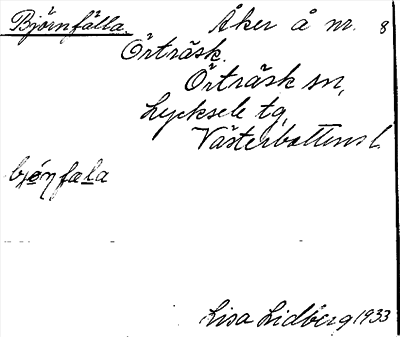 Björnfälla. Åker å nr. 8
Örträsk.
Örträsk sn,
Lycksele tg,
Västerbottens l.
bjö̱ŋfa̱la
Lisa Lidberg 1933